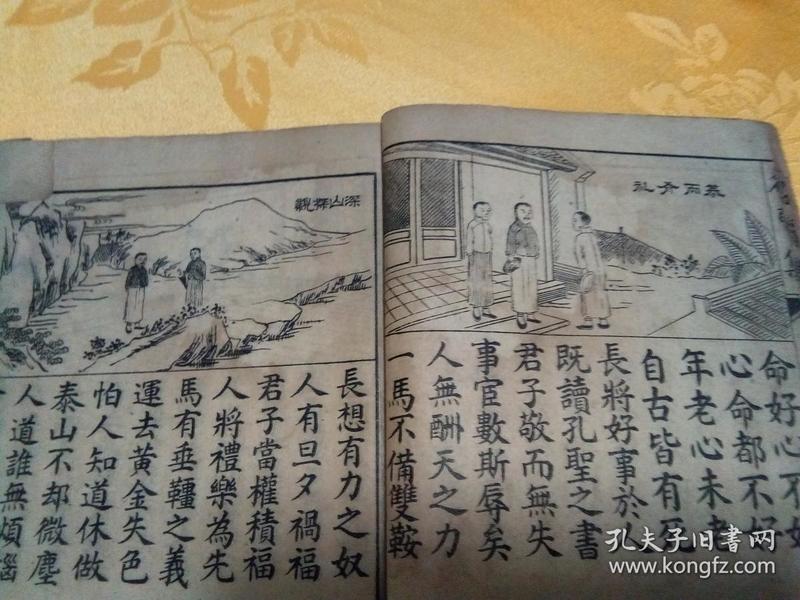 恭而有礼
命好心不好
心命都不好
年老心未老
自古皆有死
長將好事於人
既讀孔聖之書
君子敬而無失
事宦數斯辱矣
人無酬天之力
一馬不備雙鞍
深山探親
長想有力之奴
人有旦夕禍福
君子當權積福
人將禮樂為先
馬有垂韁之義
運去黃金失色
怕人知道休做
泰山不却微塵
人道誰無煩惱
孔夫子旧書网
www.kongfz.com